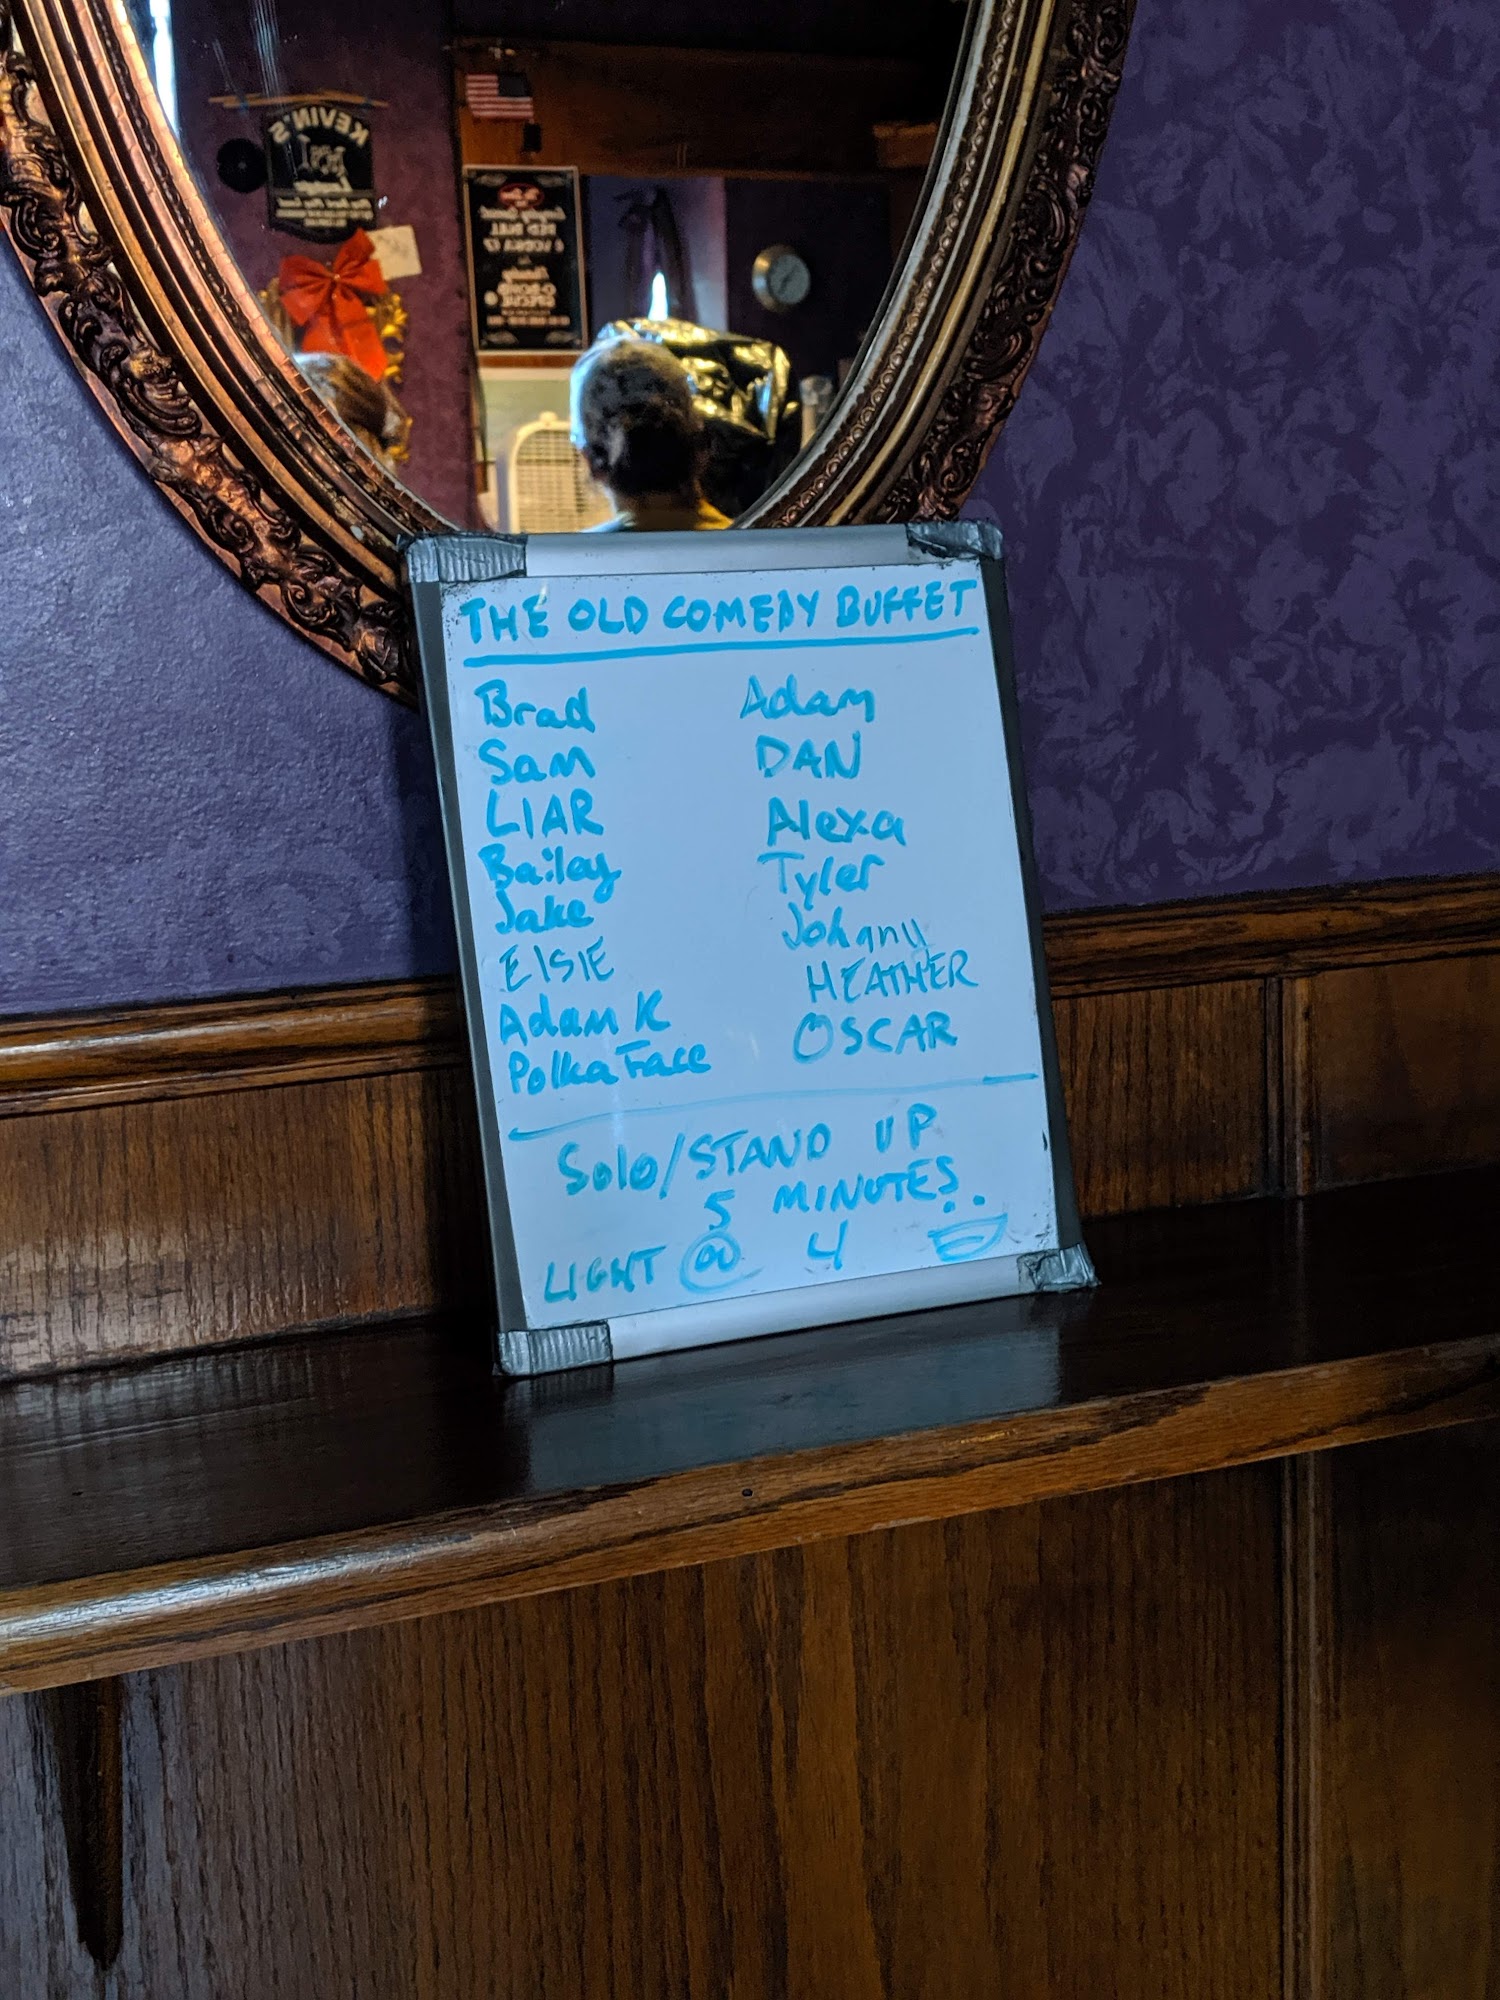 KEVIN'S
RED BULL
THE OLD COMEDY BUFFET
Brad
Sam
LIAR
Bailey
Jake
ElSIE
Adam K
Polka Face
Adam
DAN
Alexa
Tyler
Johnny
HEATHER
OSCAR
Solo/STAND UP
5 MINUTES
LIGHT @ 4